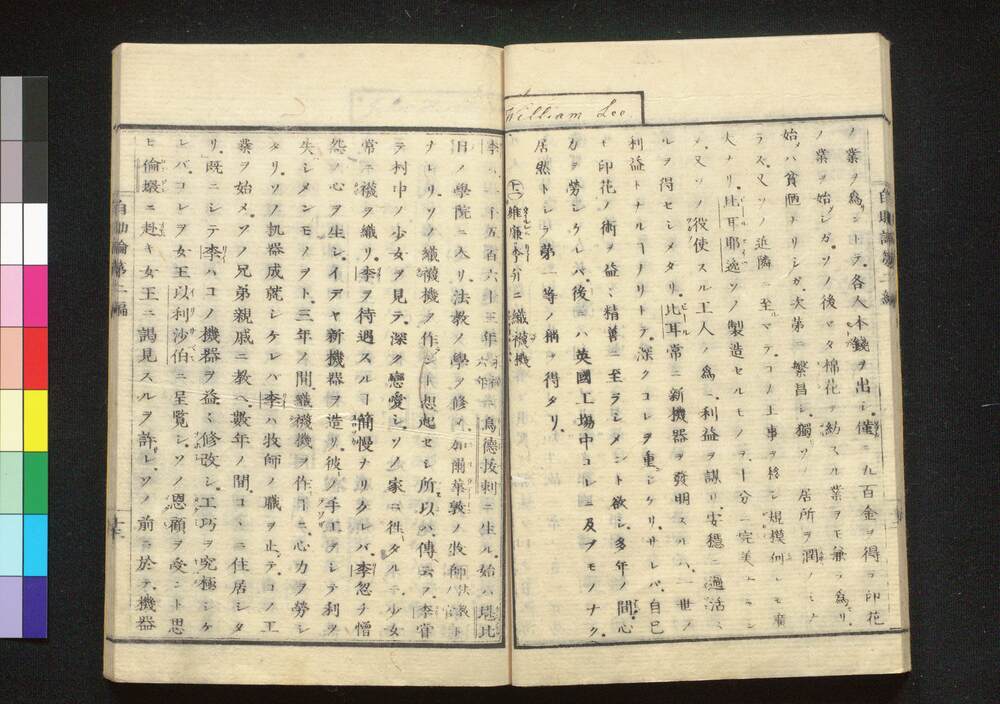 William Lee
ノ業ヲ為ントテ各人本錢ヲ出シ僅ニ九百金ヲ得テ印花
ノ業ヲ始シガソノ後マタ棉花ヲ紡スル業ヲモ兼テ為リ
始ハ貧陋ナリシガ次第ニ繁昌シ獨ソノ居所ヲ潤シミナ
ラズ又ソノ近隣ニ至ルマデコノ工事ヲ務シ規摸何レモ廣
大ナリ比耳耶逸ソノ製造セルモノヲ十分ニ完美ニシ
メ又ソノ役使スル工人ノ為ニ利益ヲ謀リ安穩ニ過活ス
ルヲ得セシメタリ比耳常ニ新機器ヲ發明スルハ一世ノ
利益トナルーナリトテ深クコレヲ重シケリサレバ自己
モ印花ノ術ヲ益々精善ニ至ラシメント欲シ多年ノ間心
力ヲ勞シケレバ後ニハ英國工場中コレニ及ブモノナク
居然トシテ第一等ノ稱ヲ得タリ
維廉李并ニ織襪機
李ハ一千五百六十三年烏德拔刺ニ生ル始ハ堪比
日ノ學院ニ入リ法教ノ學ヲ修メ加爾華敦ノ牧師ト
ナレリソノ織襪機ヲ作ント想起セシ所以ハ傳云李甞
テ村中ノ少女ヲ見テ深ク戀愛シソノ家ニ徃タルニ少女
常ニ襪ヲ織リ李ヲ待遇スルー簡慢ナリケレバ李忽チ憎
怨ノ心ヲ生シイデヤ新機器ヲ造リ彼ノ手工ヲシテ利ヲ
失シメンモノヲト三年ノ間織襪機ヲ作ーニ心力ヲ勞シ
タリソノ机器成就シケレバ李ハ牧師ノ職ヲ止テコノ工
業ヲ始メソノ兄弟親戚ニ教ヘ數年ノ間コヽニ住居シタ
リ既ニシテ李ハコノ機器ヲ益々修改シ工巧ヲ究極シケ
レバコレヲ女王以利沙伯ニ呈覧シソノ恩顧ヲ受ント思
ヒ倫墩ニ赴キ女王ニ謁見スルヲ許レソノ前ニ於テ機器
自助論第二編